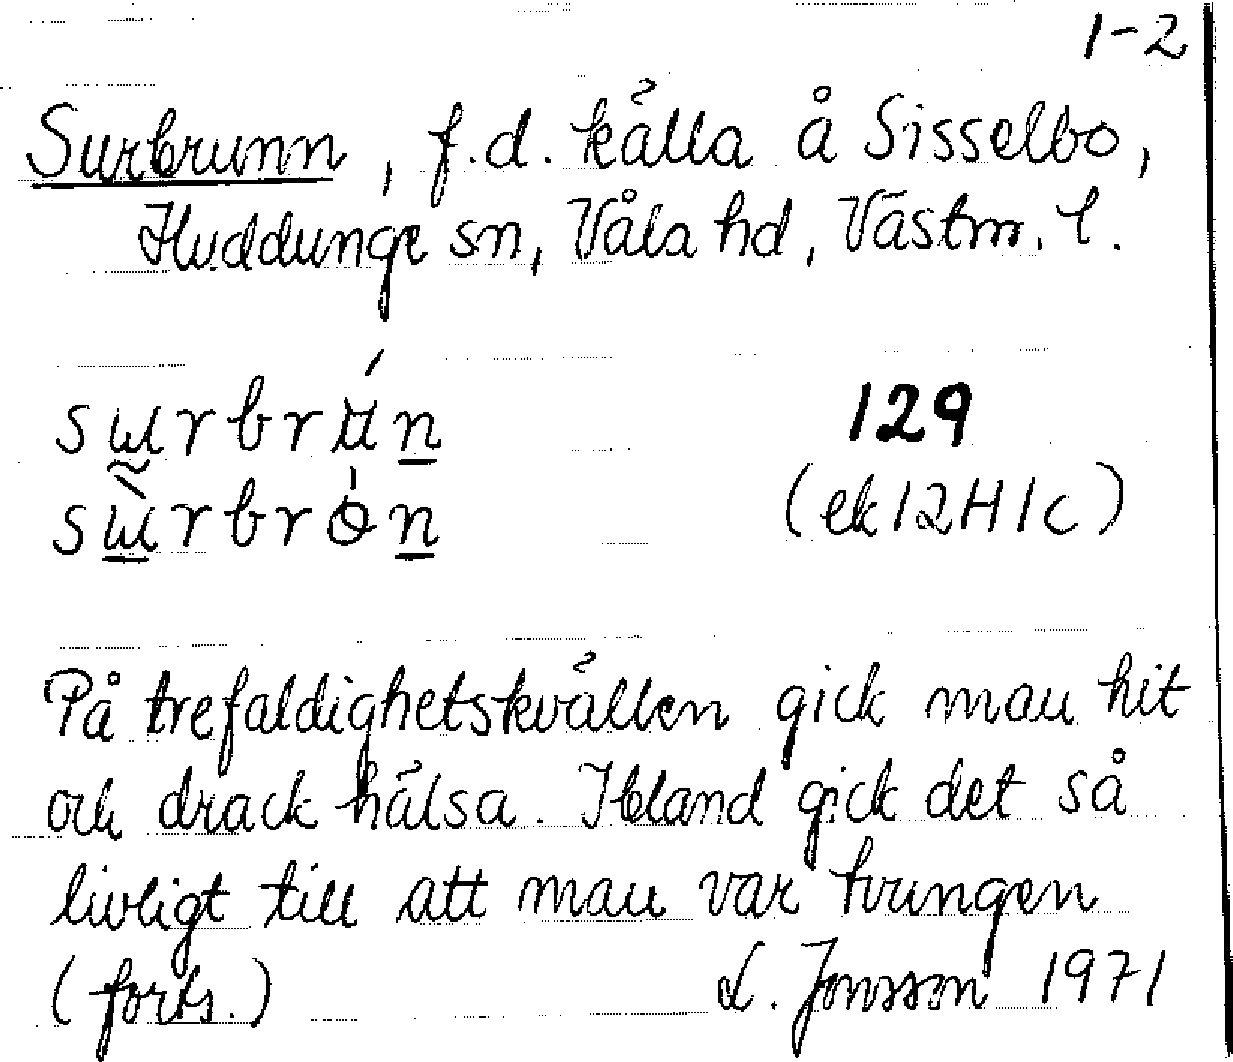 1-2
Surbrunn, f.d. källa å Sisselbo,
Huddunge sn, Våla hd, Västm. l.
surbrún
129
sùrbrón
(ek 12H1c)
På trefaldighetskvällen gick man hit
och drack hälsa. Ibland gick det så
livligt till att man var tvungen
(forts.) L. Jonsson 1971